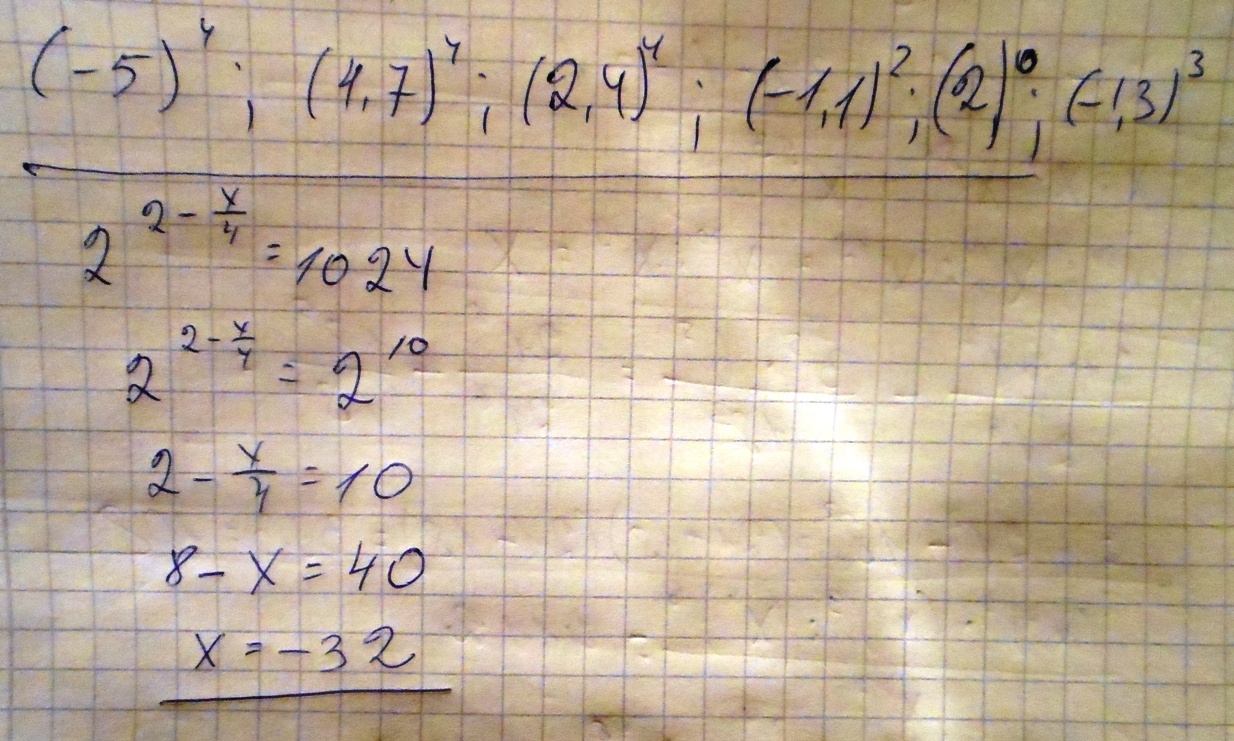 (-5)⁴; (1,7)⁴; (2,4)⁴; (-1,1)²; (2)⁰; (-1,3)³
2^(2-x/4) = 1024
2^(2-x/4) = 2^10
2 - x/4 = 10
8 - x = 40
x = -32